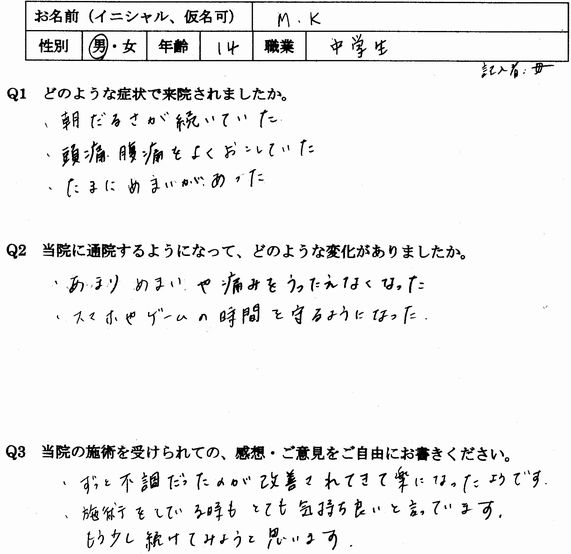 お名前（イニシャル、仮名可） M.K
性別 男・女 年齢 14 職業 中学生
記入者：母
Q1 どのような症状で来院されましたか。
、朝だるさが続いていた
、頭痛、腹痛をよくおこしていた
、たまにめまいがあった
Q2 当院に通院するようになって、どのような変化がありましたか。
・あまりめまいや痛みをうったえなくなった
、スマホやゲームの時間を守るようになった.
Q3 当院の施術を受けられての、感想・ご意見をご自由にお書きください。
、ずっと不調だったのが改善されてきて楽になったようです.
、施術をしている時もとても気持ち良いと言っています.
もう少し続けてみようと思います.